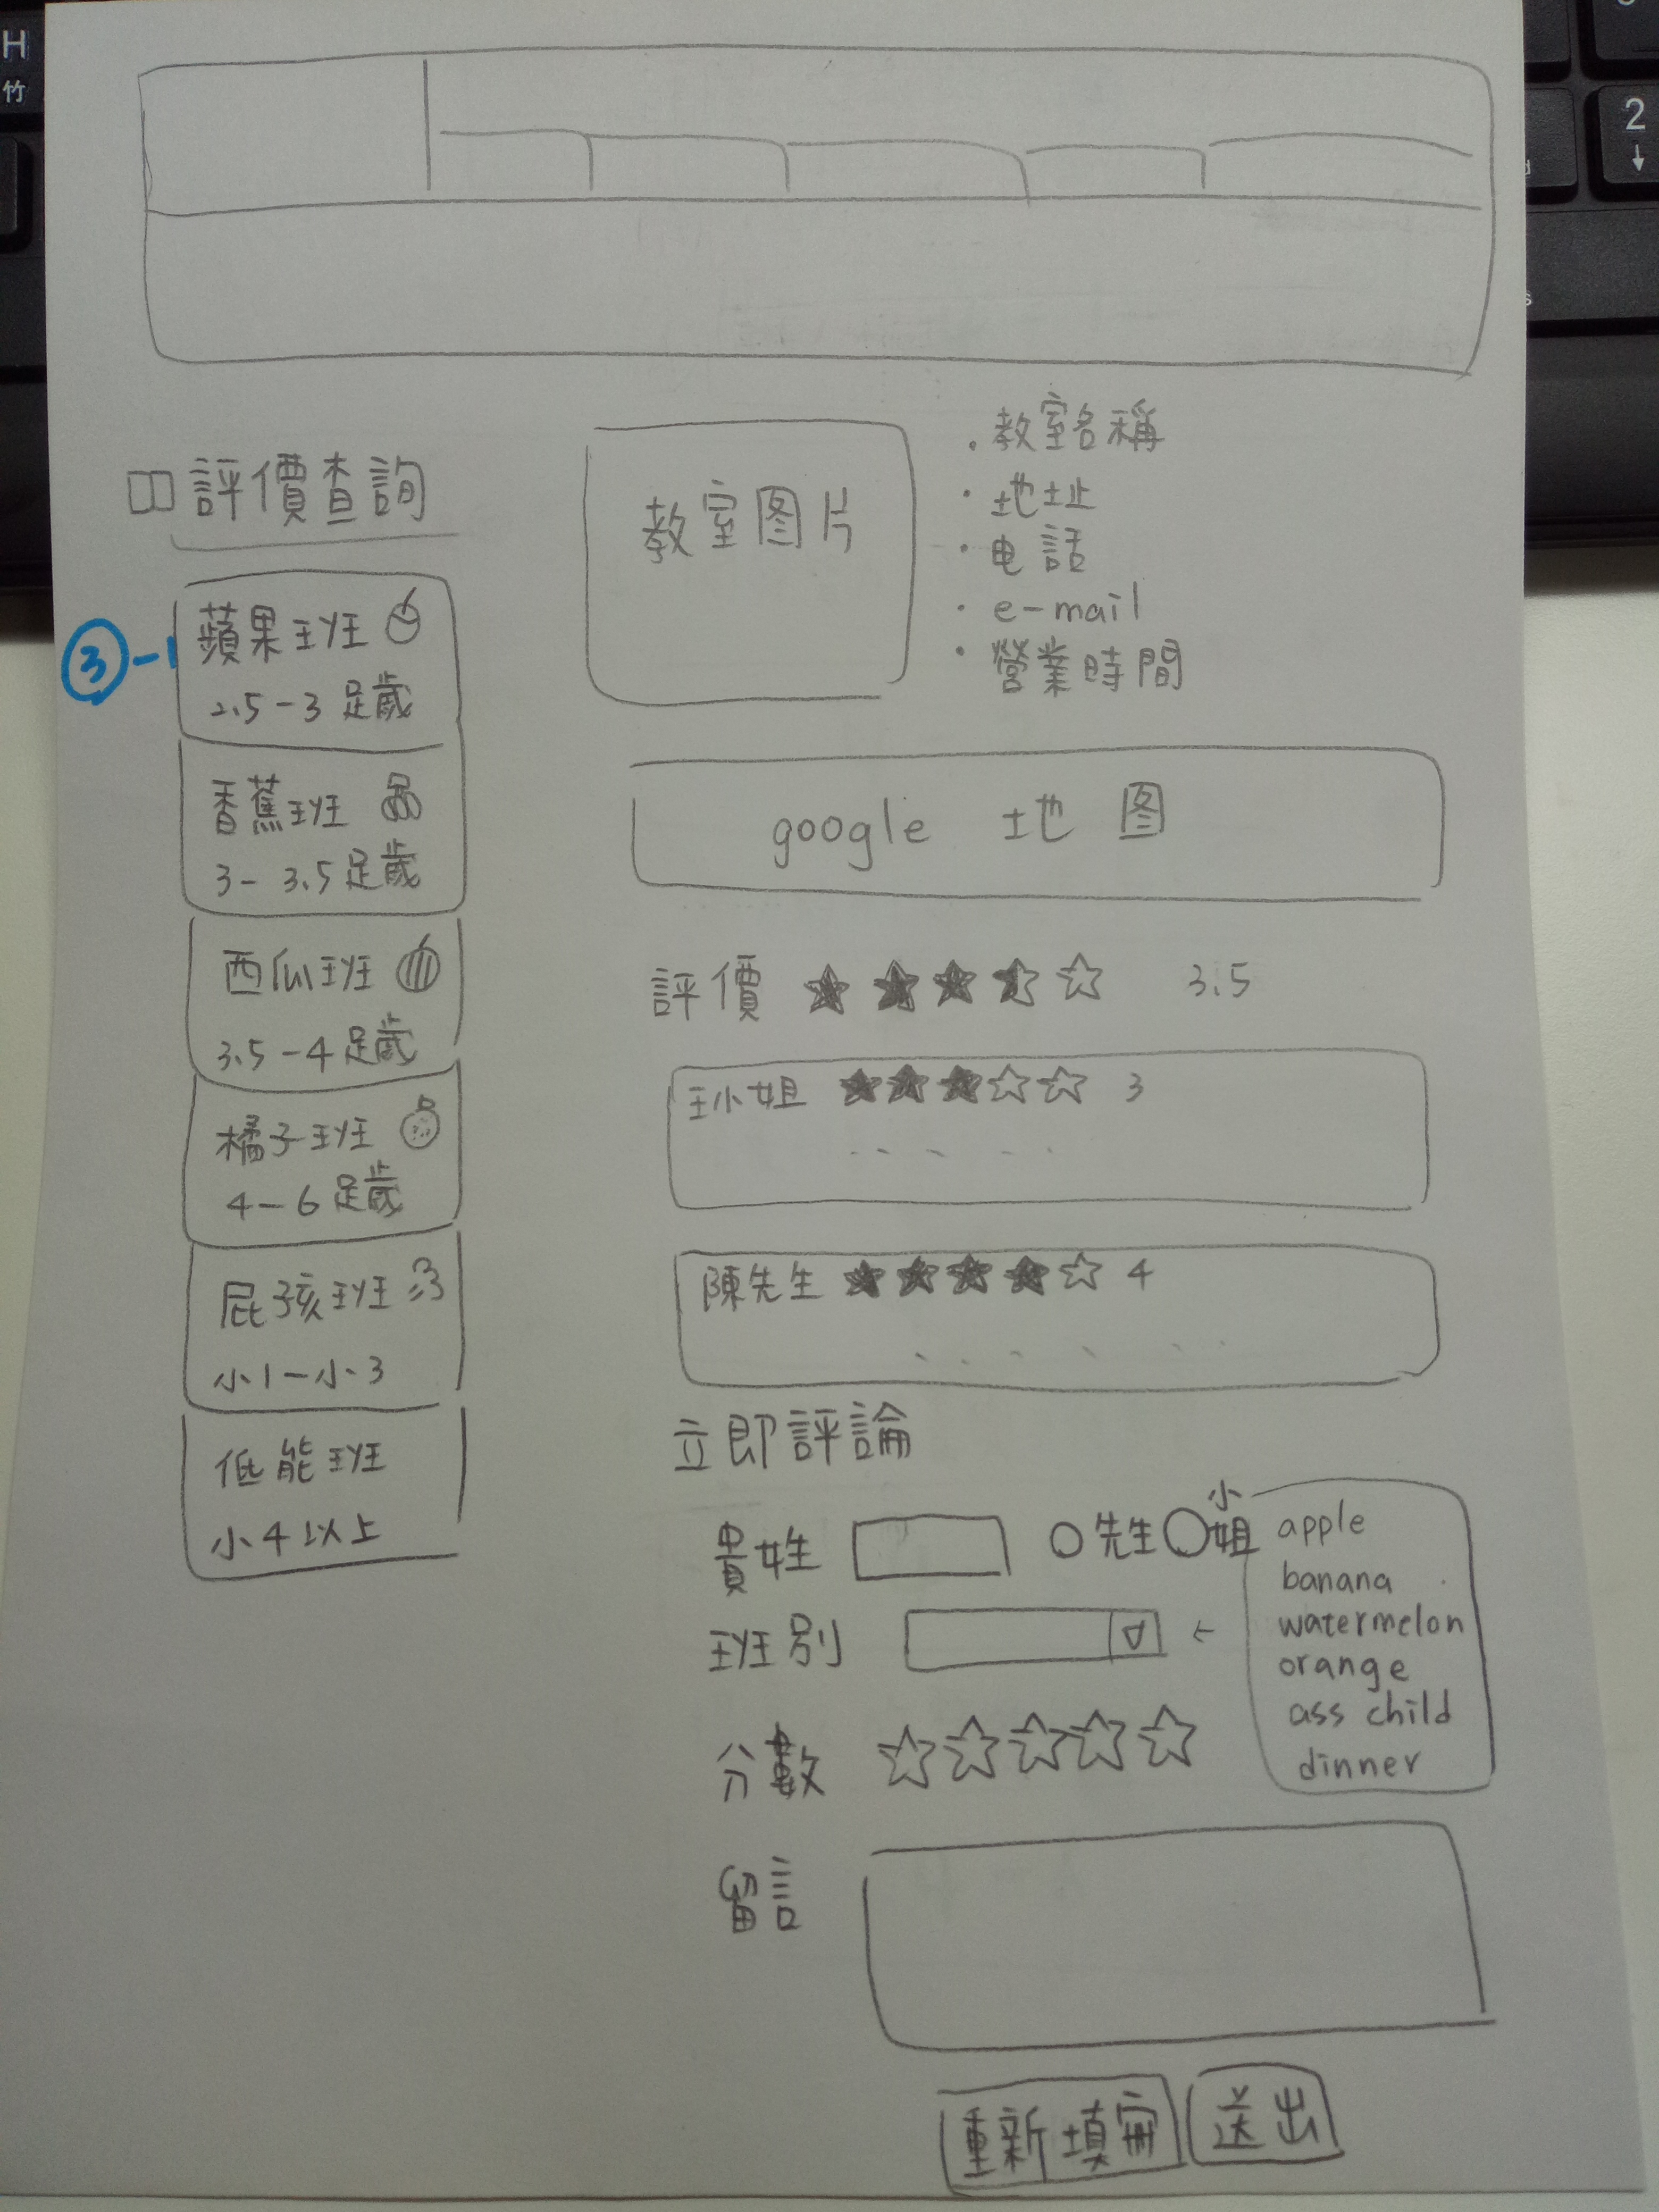 H
竹
2
↓
評價查詢
③-1
蘋果班
2.5-3 足歲
香蕉班
3-3.5 足歲
西瓜班
3.5-4 足歲
橘子班
4-6 足歲
屁孩班
小1-小3
低能班
小4以上
教室图片
．教室名稱
．地址
．电話
．e-mail
．營業時間
google 地图
評價 ★★★⯪☆ 3.5
王小姐 ★★★☆☆ 3
陳先生 ★★★★☆ 4
立即評論
貴姓 ○先生○小姐
班別 ←
apple
banana
watermelon
orange
ass child
dinner
分數 ☆☆☆☆☆
留言
重新填寫
送出